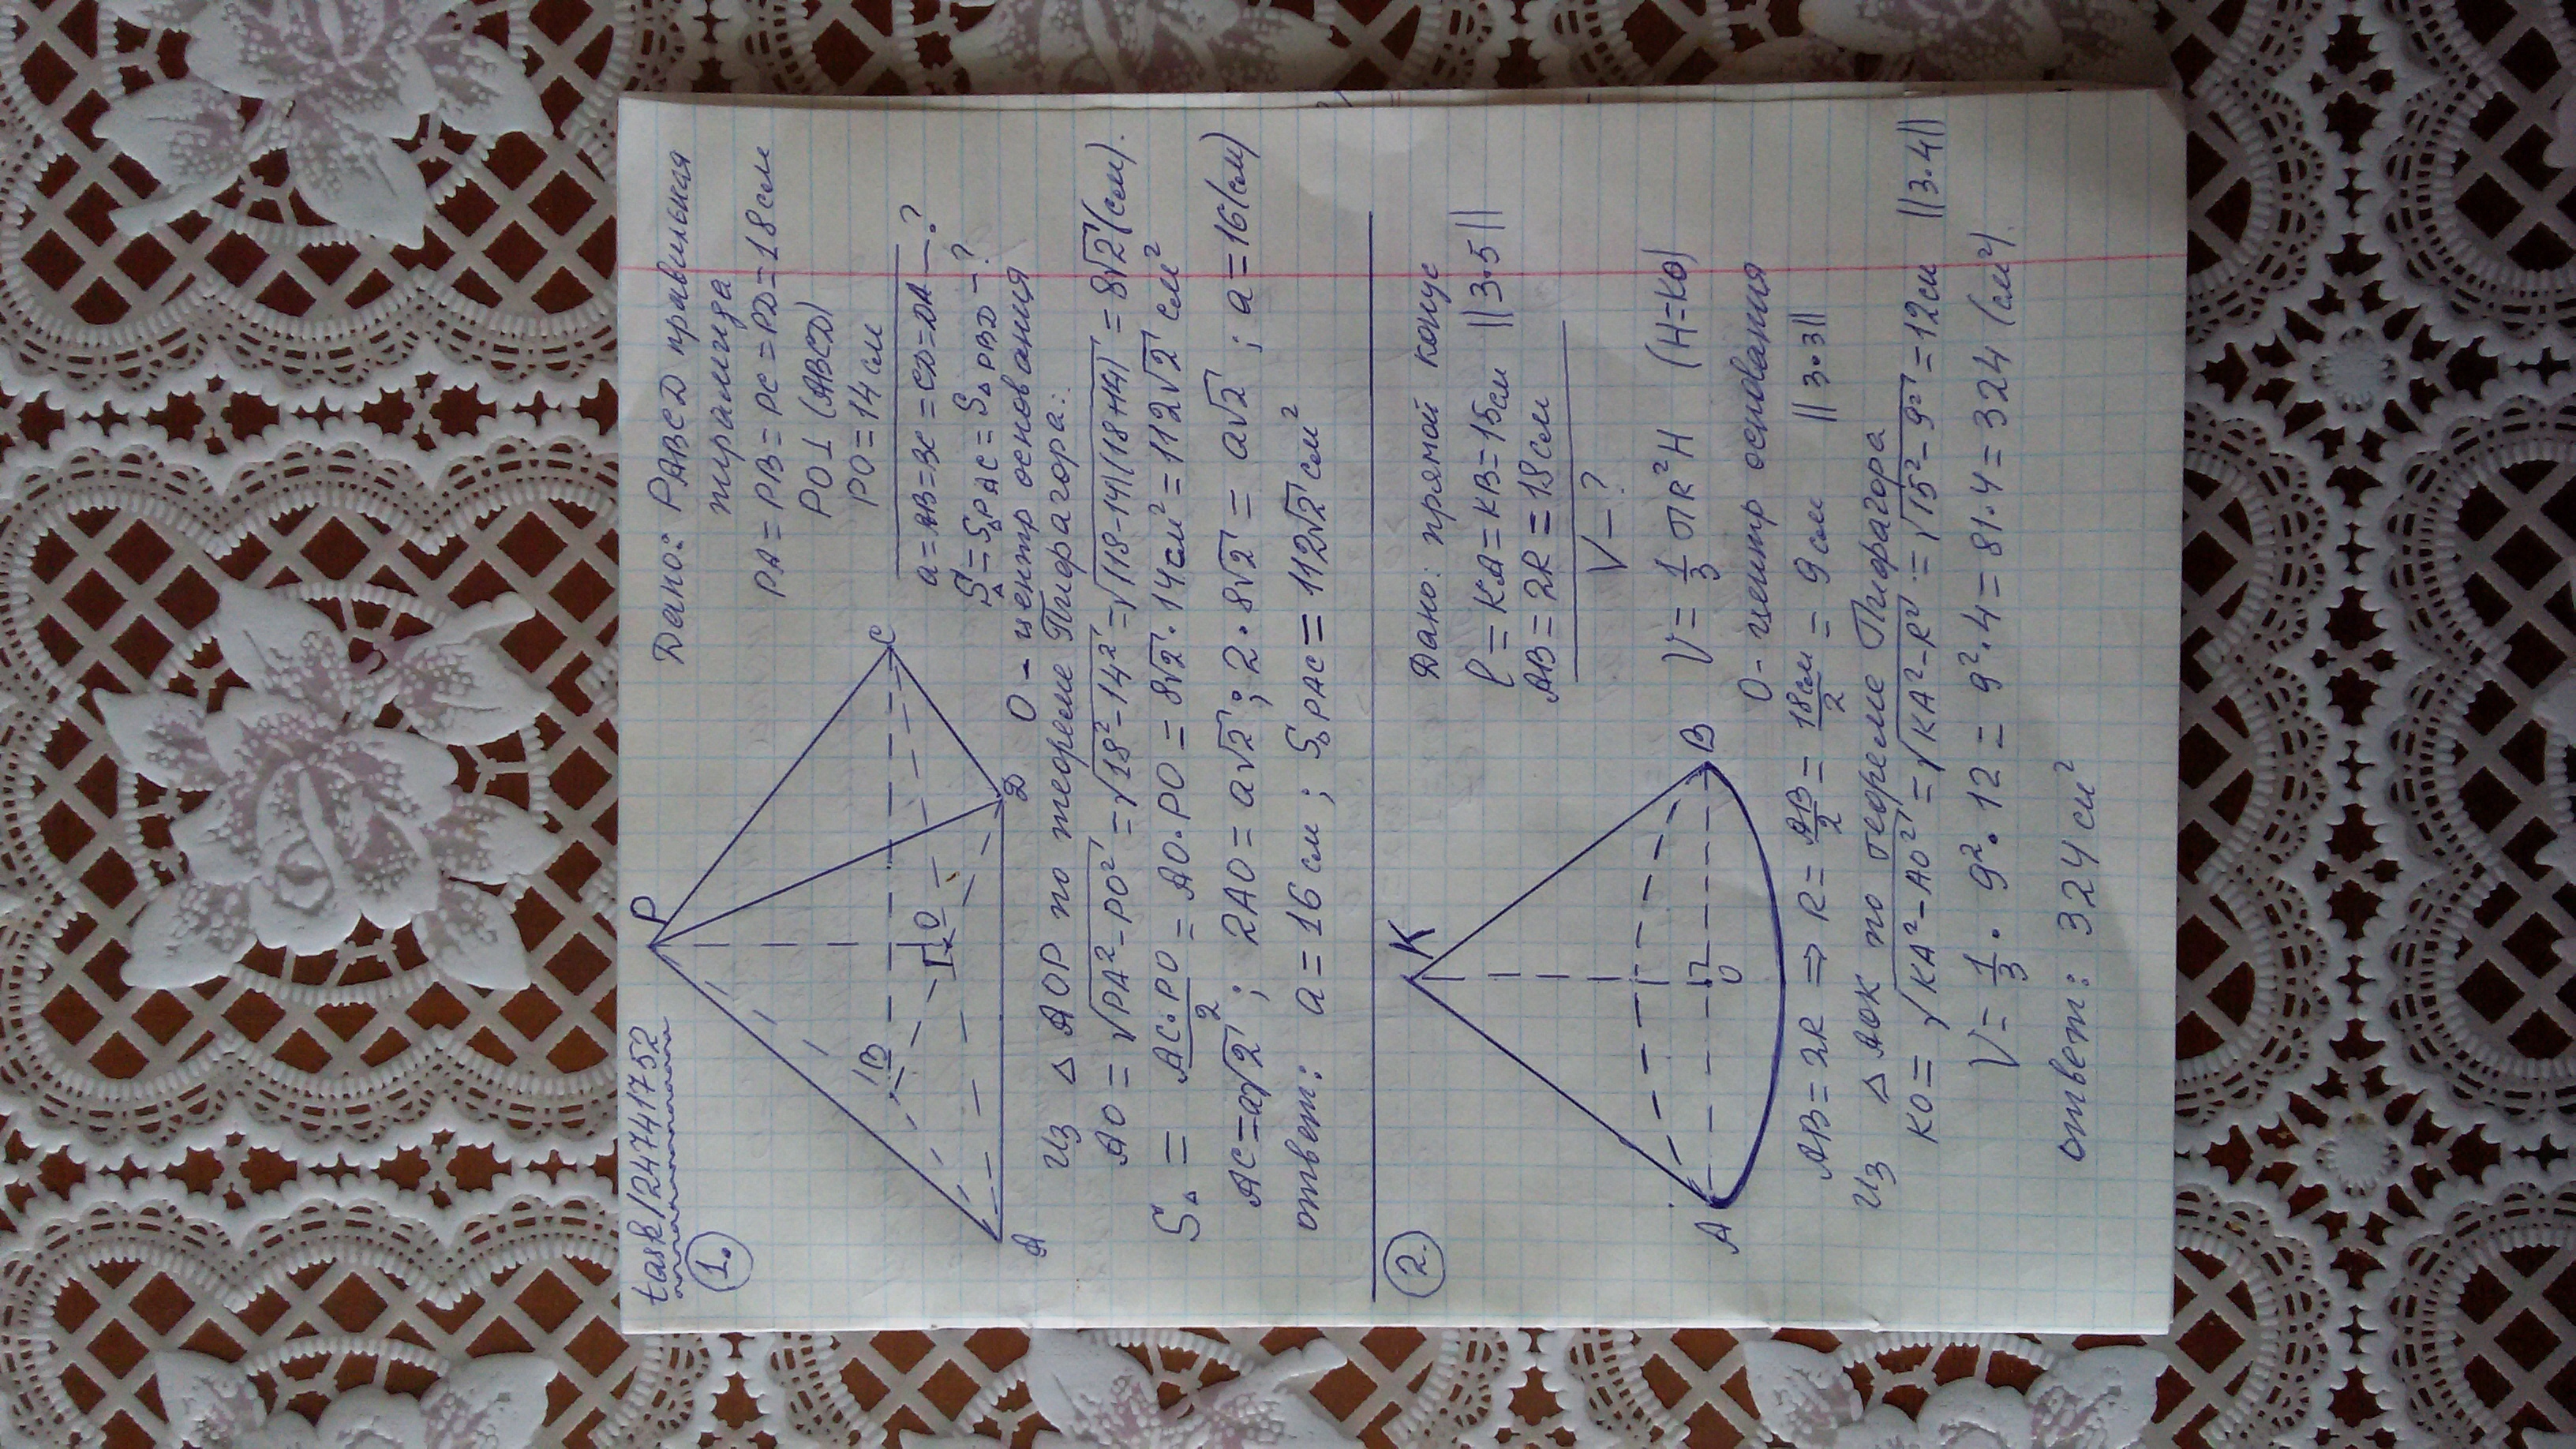 task/24741752
1.
Дано: PABCD правильная
пирамида
PA = PB = PC = PD = 18 см
PO ⊥ (ABCD)
PO = 14 см
a = AB = BC = CD = DA — ?
S△ = S△PAC = S△PBD — ?
P
B
C
O
A
D
O – центр основания
Из △ AOP по теореме Пифагора:
AO = √PA² - PO² = √18² - 14² = √(18-14)(18+14) = 8√2 (см).
S△ = AC·PO/2 = AO·PO = 8√2 · 14 см² = 112√2 см²
AC = a√2 ; 2AO = a√2 ; 2·8√2 = a√2 ; a = 16 (см)
ответ: a = 16 см ; S△PAC = 112√2 см²
2.
Дано: прямой конус
l = KA = KB = 15 см ||3·5||
AB = 2R = 18 см
V — ?
K
A
B
O
V = 1/3 πR²H (H=KO)
O - центр основания
AB = 2R ⇒ R = AB/2 = 18 см/2 = 9 см ||3·3||
Из △ AOK по теореме Пифагора
KO = √KA² - AO² = √KA² - R² = √15² - 9² = 12 см ||3·4||
V = 1/3 · 9² · 12 = 9² · 4 = 81 · 4 = 324 (см²).
ответ: 324 см²